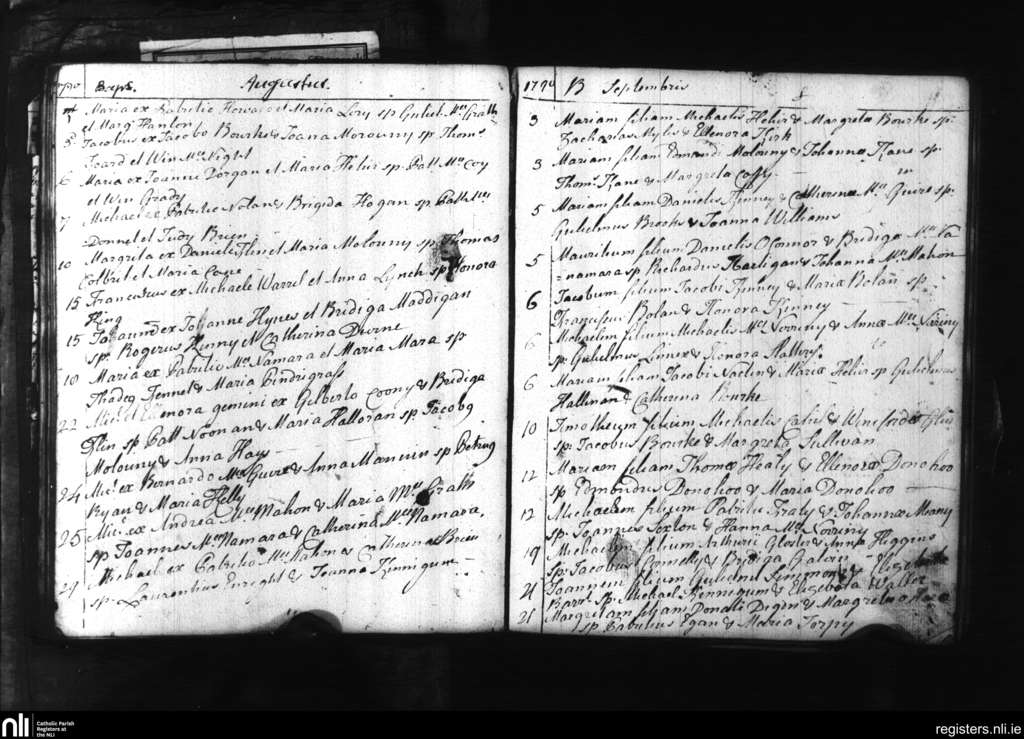 1790 Bapt. Augustus
Maria ex Patritio Howard et Maria Levy sp Guliel Mc Grath
et Marg Hanlon
5 Jacobus ex Jacobo Bourke & Joana Morouny sp Thoms
et Win Mc Night
6 Maria ex Joanne Dorgan et Maria Helir sp. Patt Mc Coy
et Win Grady
7 Michael ex Patritio Nolan & Brigida Hogan sp Patt
Donnel et Judy Brien
10 Margrita ex Daniele et Maria Molouny sp Thomas
et Maria Cane
15 Franciscus ex Michaele Warrel et Anna Lynch sp Honora
King
15 ex Johanne Hynes et Bridiga Maddigan
sp. Rogerus & Catherina
18 Maria ex Patritio Mc Namara et Maria Mara sp
Thadeq & Maria
22 Mic et Elenora gemini ex Gelberto Coony & Bridiga
Glin sp Patt Noonan & Maria Halloran sp Jacobq
Molouny & Anna Hays
24 Mic. ex Bernardo Mc Guire & Anna sp Petruq
Ryan & Maria Helly
25 Mic. ex Andrea Mc Mahon & Maria Mc Grath
sp Joannes Mc Namara & Catherina Mc Namara,
29 Michael ex Patritio Mc Mahon & Catherina Brien
sp. Laurentius Enright & Joanna Kinnigum
1790 B Septembris
3 Mariam filiam Michaelis Helir & Margreta Bourke sp:
Zacharias Myles & Ellenora Kirk
3 Mariam filiam Edmundi Molouny & Johannæ Kane sp
Thoms Kane & Margreta
5 Mariam filiam Danielis Kinney & Catherinæ Mc Guire sp.
Gulielmus & Joanna Williams
5 Mauritium filium Danielis O'Connor & Bridiga Mc Na
=namara sp Richardus Hartigan & Johanna Mc Mahon
6 Jacobum filium Jacobi Kinney & Maria Bolan sp.
Franciscus Bolan & Honora Kinney
6 Michaelem filium Michaelis Mc & Annæ Mc
sp. Gulielmus & Honora Slattery
6 Mariam filiam Jacobi & Mariæ Helir sp Gulielmus
Hallinan & Catherina Bourke
10 Timotheum filium Michaelis &
sp: Jacobus Bourke & Margreta Sullivan
12 Mariam filiam Thomæ Healy & Ellenoræ Donohoo
sp Edmondus Donohoo & Maria Donohoo
12 Michaelem filium Patritii & Johannæ Meany
sp: Joannes Sexton & Hanna Mc
19 Michaelem filium Arthurii Gloster & Anna Higgins
sp: Jacobus Connelly & Bridiga
21 Joannem filium Gulielmi & Elizabeth
sp Michael Kinnigum & Elizabeta Waller
21 Margretam filiam Donati & Margreta
sp Patritius Egan & Maria Torpy
nli Catholic Parish
Registers at
the NLI
registers.nli.ie